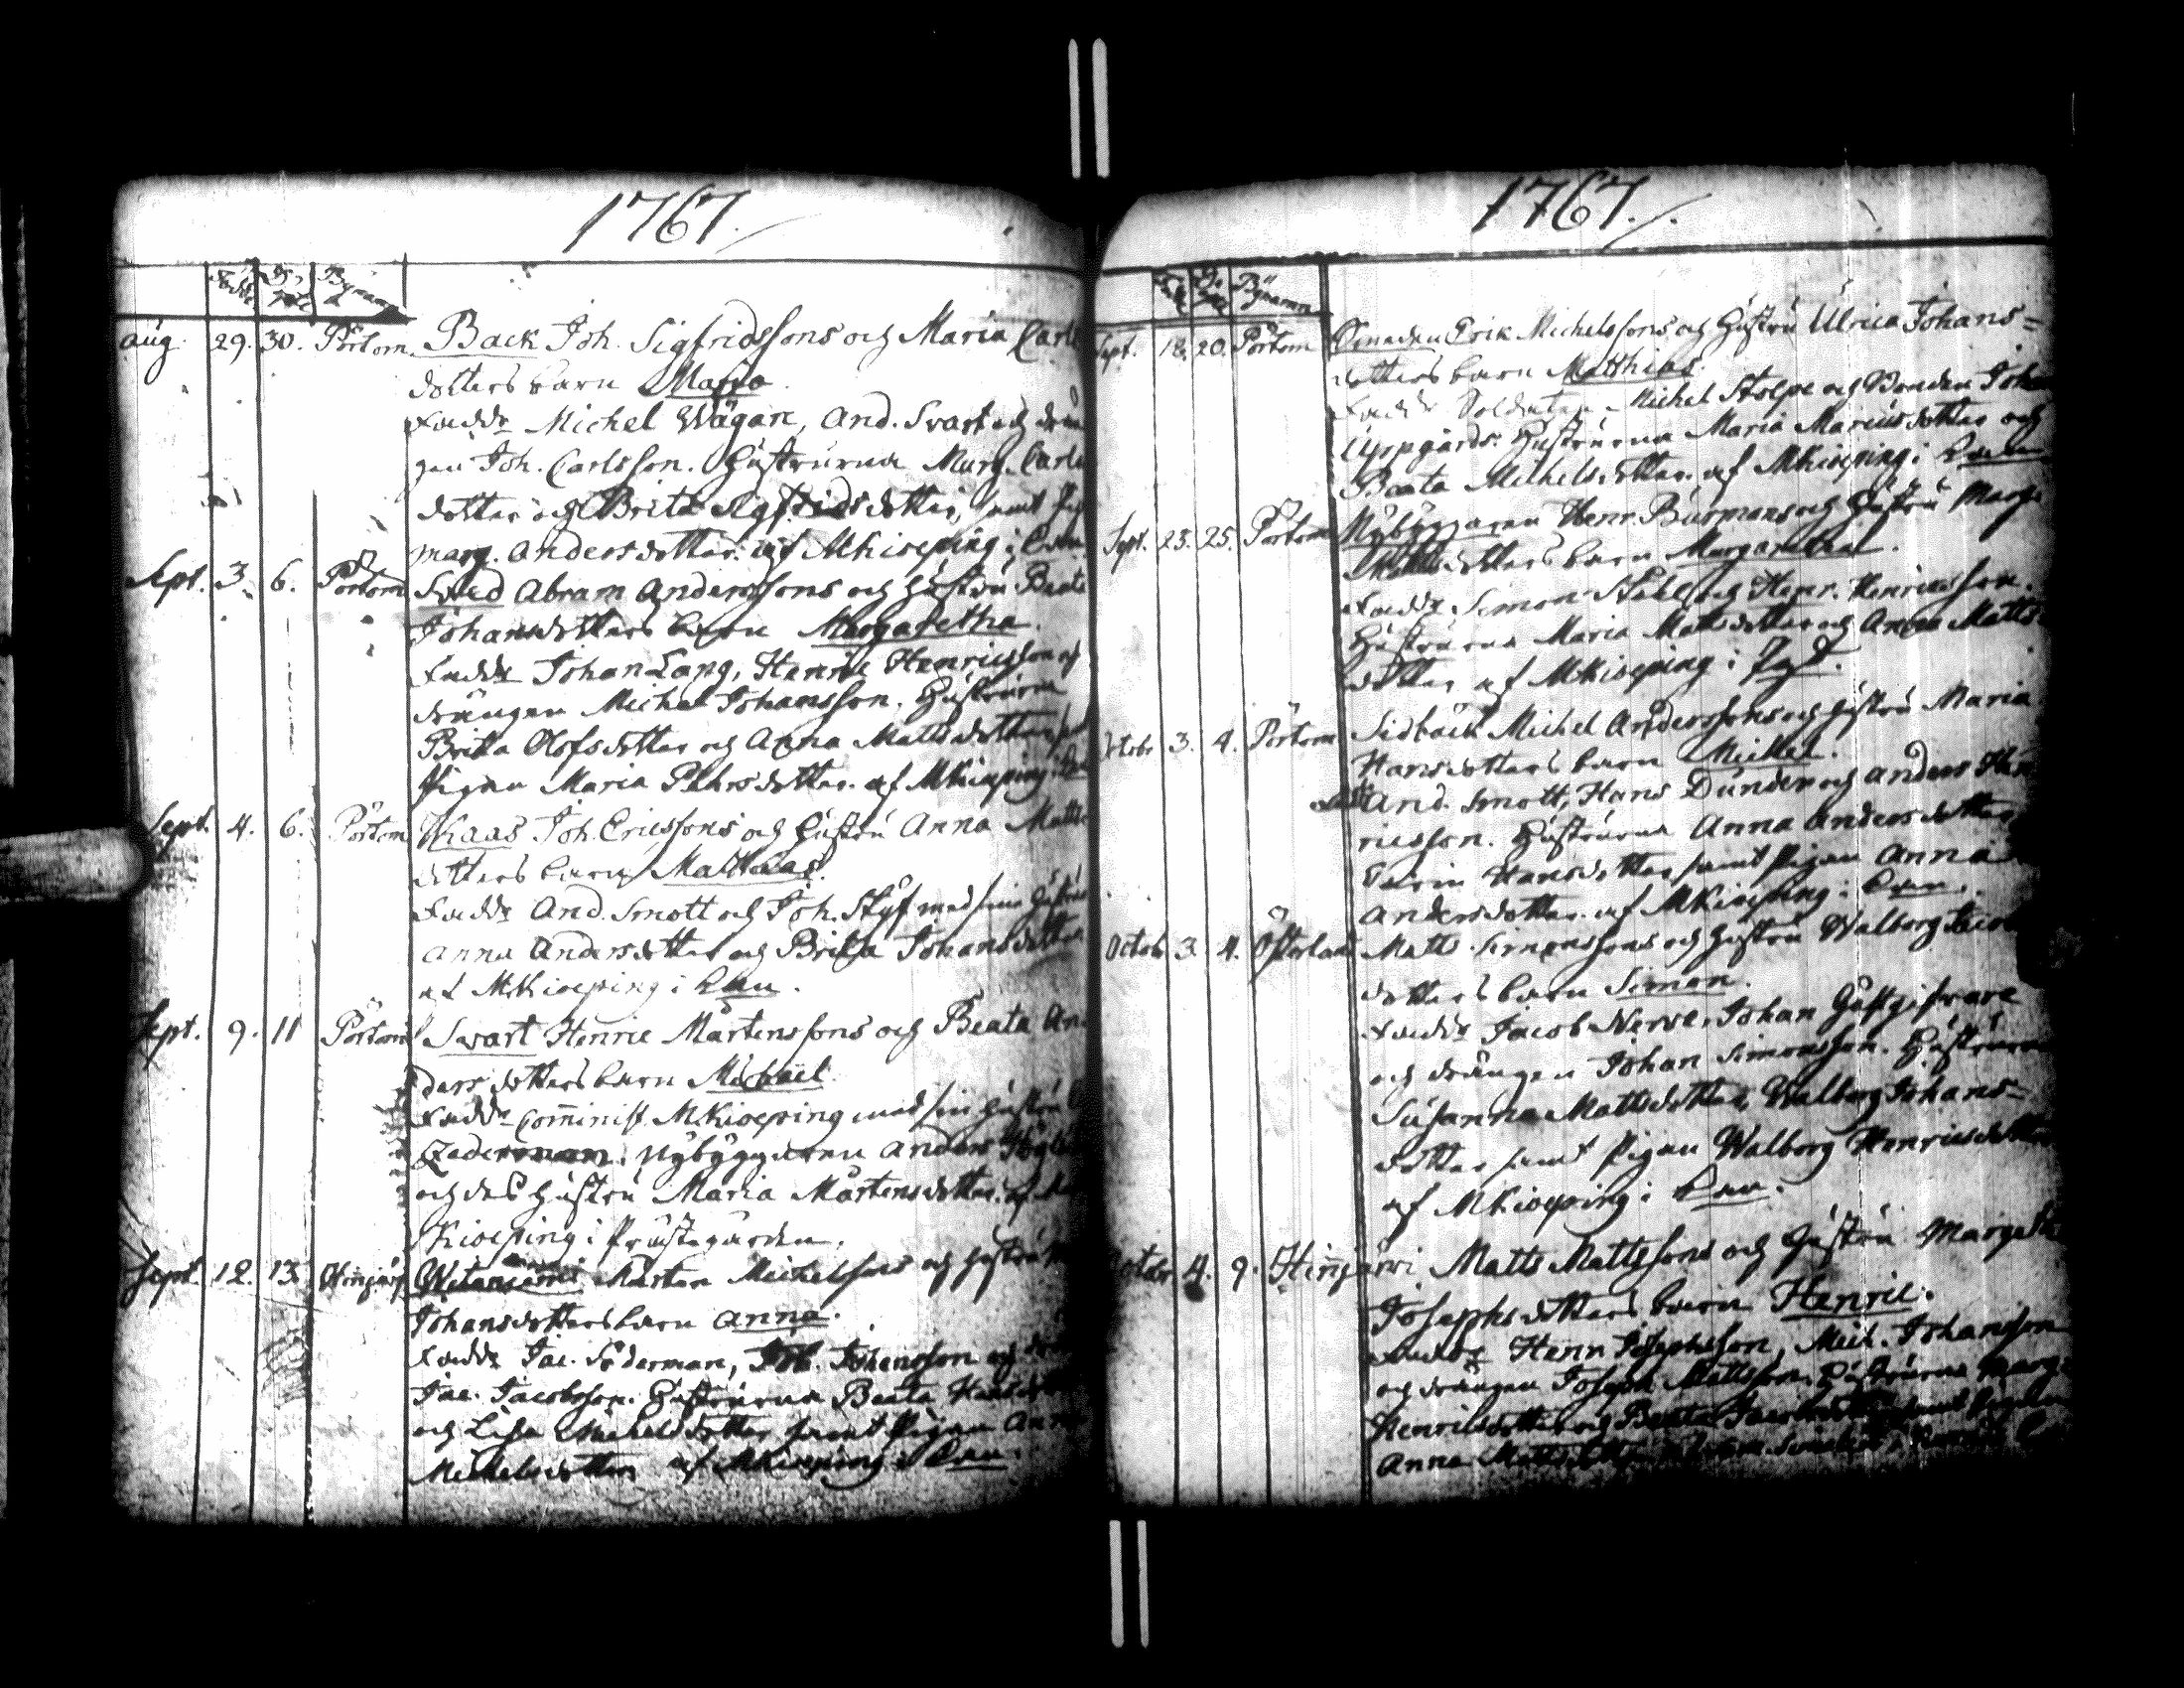 1767
Födde Döpte Bynamn
Aug. 29. 30. Pörtom. Back Joh. Sigfridssons och Maria Carls
dotters barn Maria
Fadd: Michel Wägar, And. Svart och drän
gen Joh. Carlsson. Hustrurna Marg. Carls
dotter och Brita Sigfridsdotter, samt Pig
Marg. Andersdotter. af MKioeping i
Sept. 3. 6. Pörtom Abram Anderssons och Hustru Beata
Johansdotters barn Margaretha.
Fadd: Johan Lang, Henric Henricsson och
drängen Michel Johansson. Hustrurna
Brita Olofsdotter och Anna Mattsdotter
Pigan Maria Pehrsdotter. af MKioeping i
Sept. 4. 6. Pörtom Kaas Joh. Ericssons och Hustru Anna Matts
dotters barn Matthias.
Fadd: And. Smott och Joh. Styf med sina Hustrur
Anna Andersdotter och Brita Johansdotter
af MKioeping i
Sept. 9. 11 Pörtom Svart Henric Mårtenssons och Beata An
dersdotters barn Michael.
Fadd: Cominist. MKioeping med sin Hustru
Zederman. Nybyggaren Anders
och dess Hustru Maria Mårtensdotter. af M
Kioeping i Prästegården.
Sept. 12. 13. Mårten Michelssons och Hustru
Johansdotters barn Anna.
Fadd: Jac. Söderman, Joh. Johansson och
Jac. Jacobsson. Hustrurna Beata
och Lisa Michelsdotter samt Pigan Anna
Michelsdotter af MKioeping i
1767.
Födde Döpte Bynamn
Sept. 18. 20. Pörtom Erik Michelssons och Hustru Ulrica Johans=
dotters barn Matthias.
Fadd: Soldaten Michel Stolpe och Bonden Joh
Uppgårds. Hustrurna Maria Mariusdotter och
Beata Michelsdotter. af MKioeping i
Sept. 23. 25. Pörtom Nybyggaren Henr. Burmans och Hustru Marg.
Mattsdotters barn Margaretha.
Fadd: Simon Stål och Henr. Henricsson.
Hustrurna Maria Mattsdotter och Anna Matts
dotter af MKioeping i
Octobr 3. 4. Pörtom Sidbäck Michel Anderssons och Hustru Maria
Hansdotters barn Michel.
Fadd: And. Smott, Hans Dunder och Anders Hen
ricsson. Hustrurna Anna Andersdotter
Hansdotter samt Pigan Anna
Andersdotter. af MKioeping i
Octobr 3. 4. Österland Matts Simonssons och Hustru Walborg Jacobs
dotters barn Simon.
Fadd: Jacob Nerve, Johan Gästgifvare
och drängen Johan Simonsson. Hustrurna
Susanna Mattsdotter, Walborg Johans=
dotter samt Pigan Walborg Henricsdotter
af MKioeping i
Octobr 4. 9. Hinjärvi Matts Mattssons och Hustru Margeta
Josephsdotters barn Henric.
Fadd: Henr. Josephsson, Mich. Johansson
och drängen Joseph Mattsson. Hustrurna Marg.
Henricsdotter och Beata Jacobsdotter samt Pigan
Anna Mattsdotter